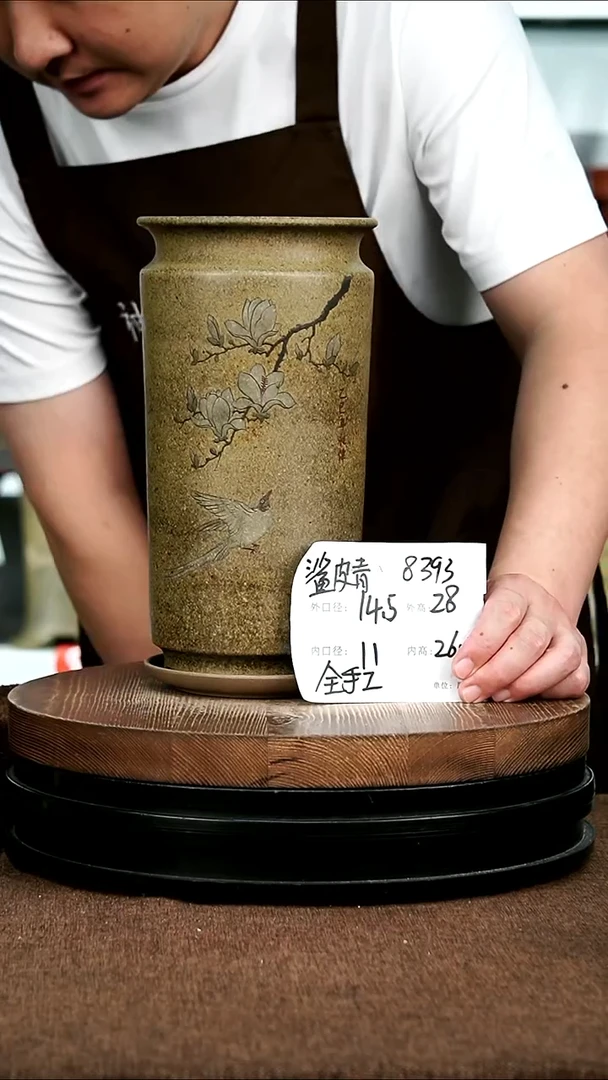 鲨皮青 8393
外口径: 14.5 外高: 28
内口径: 11 内高: 26
全手工 单位: